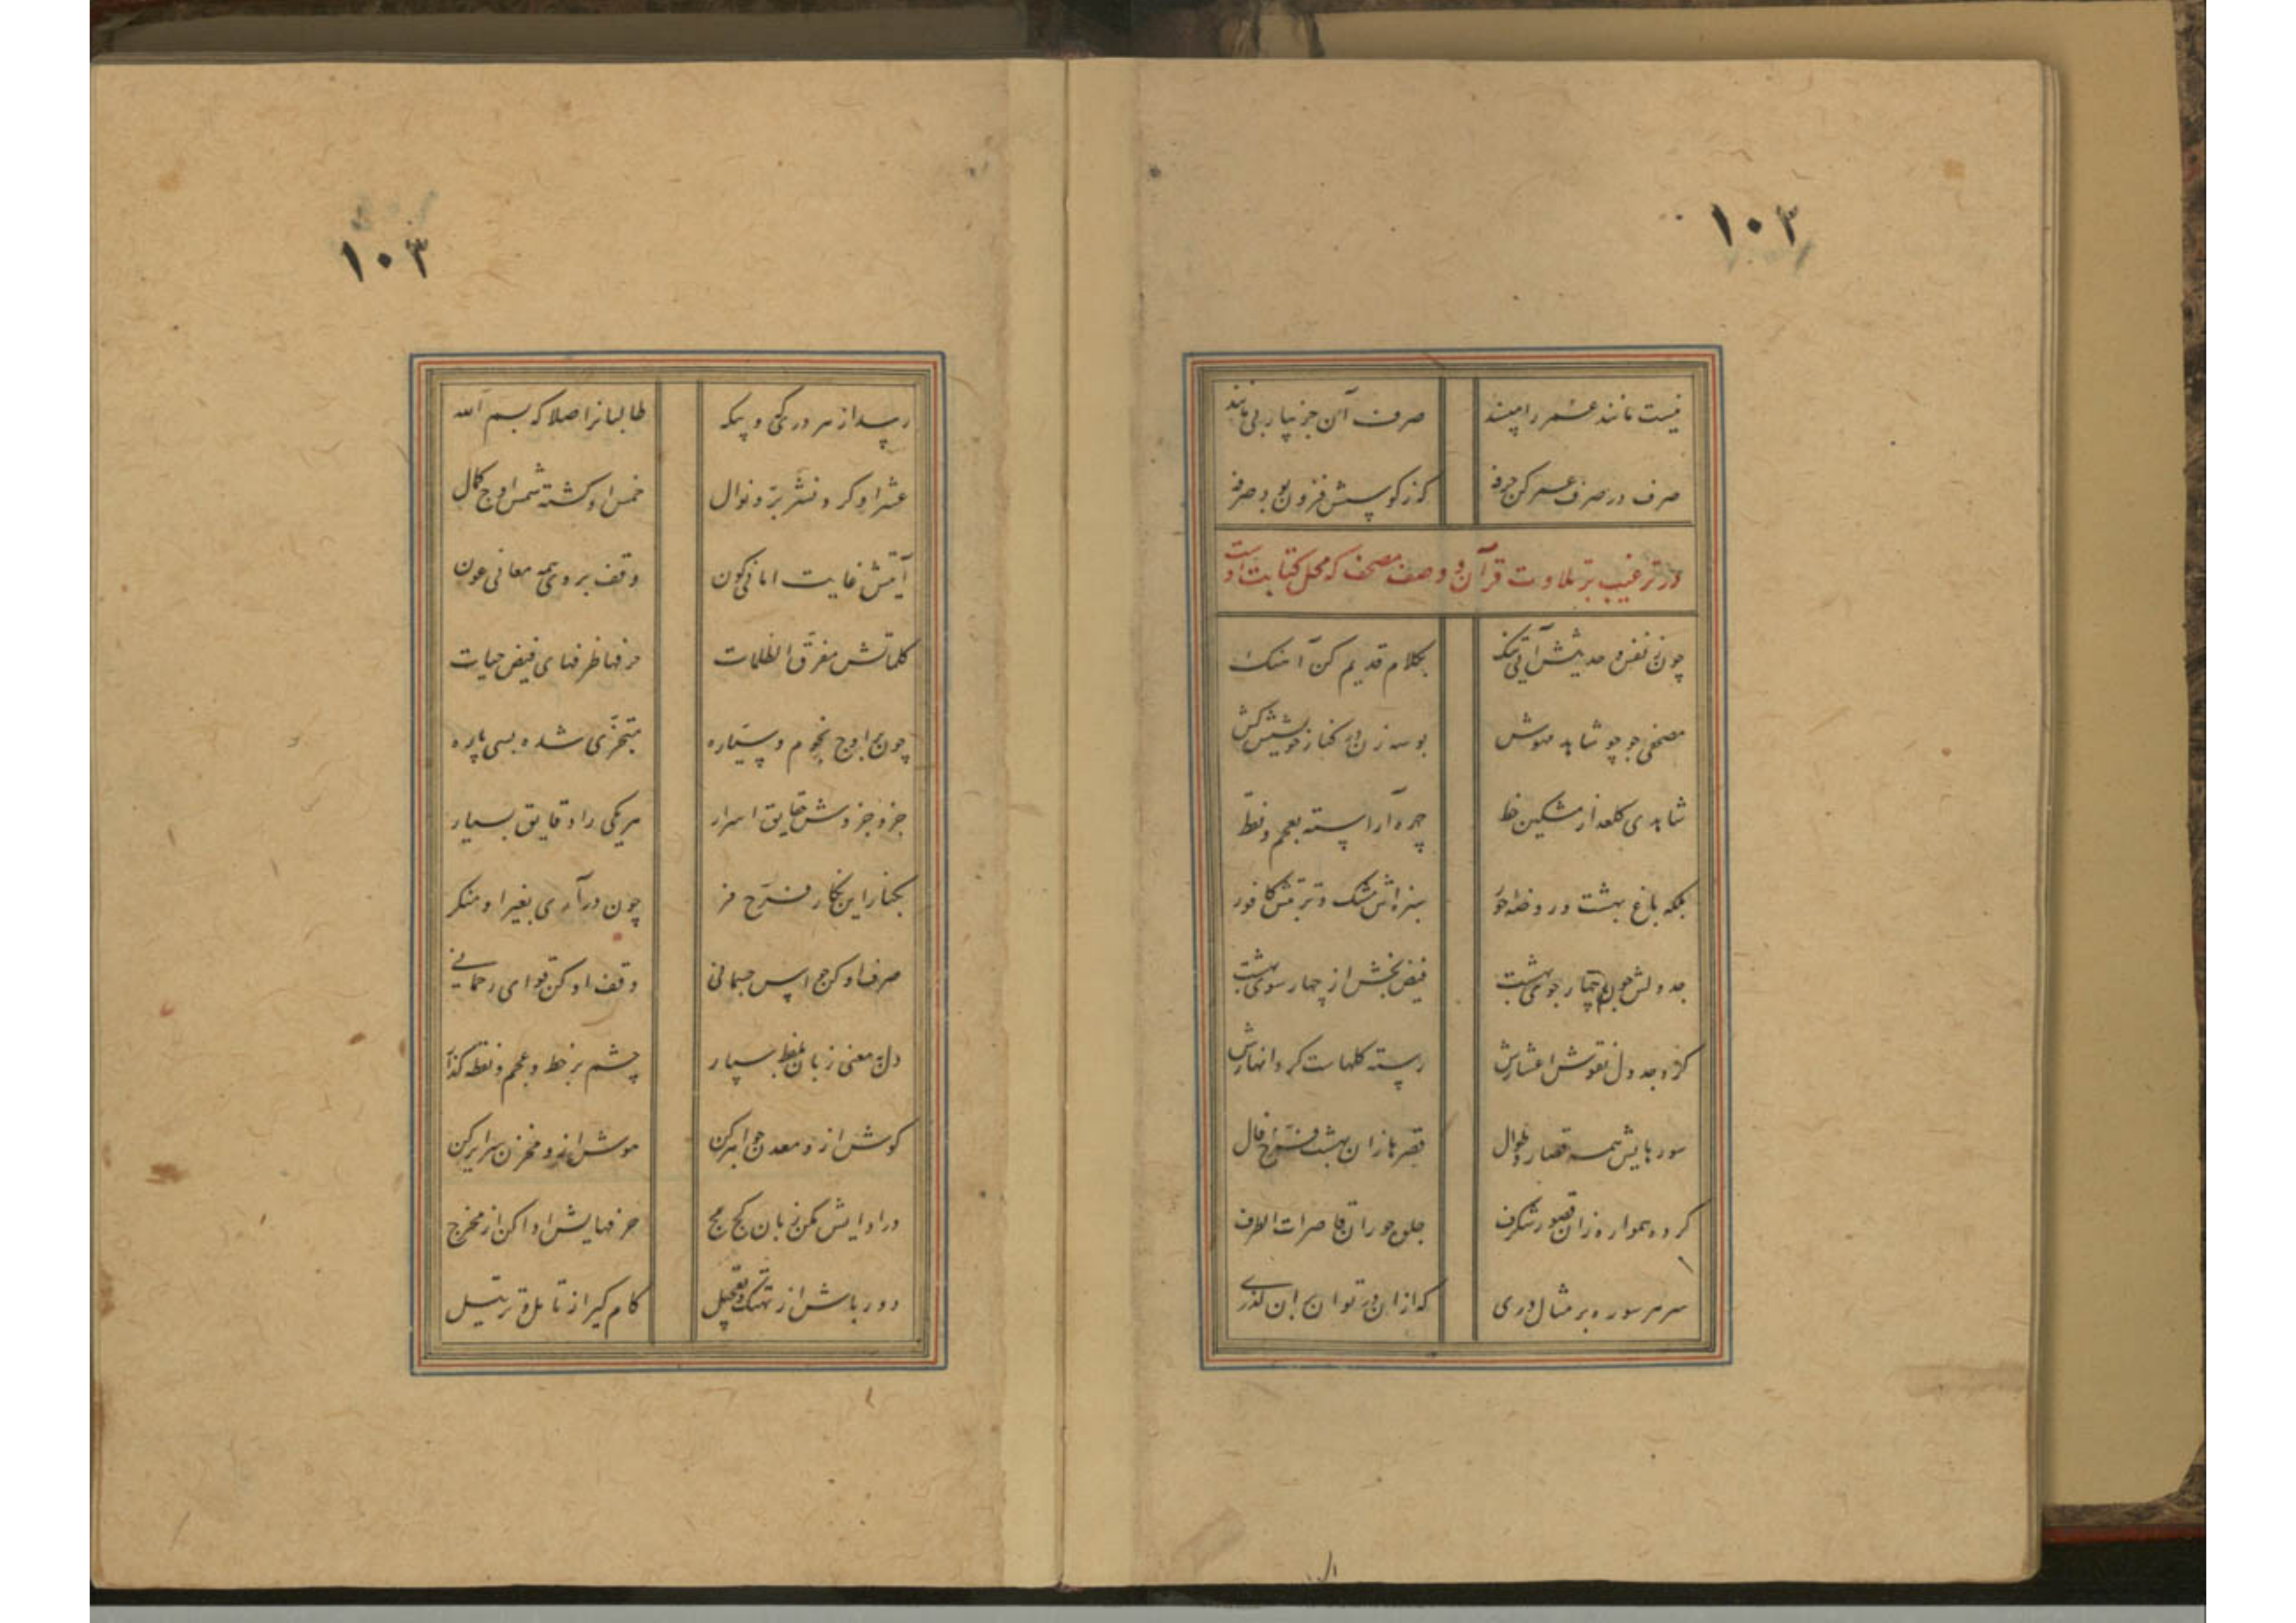 ١٠٢
نیست مانند عمر را مپسند صرف آن جز بیار بی مانند
صرف در صرف عمر کن حرفه که زکوشش فزون بود صرفه
در ترغیب بر تلاوت قرآن و وصف مصحف که محل کتابت اوست
چون ز نفس و حدیثش آیی تنگ بکلام قدیم کن آهنگ
مصحفی جو چو شاهد مهوش بوسه زن در کنار خویشش کش
شاهدی کلعذار مشکین خط چهره آراسته بعجم و نقط
بلکه باغ بهشت و روضه حور سبزه اش مشک و تربتش کافور
جدولش چون چهار جوی بهشت فیض بخش از چهار سوی بهشت
کرد جدول نقوش اعشارش رسته کلهاست کرد انهارش
سورهایش همه قصار و طوال قصرها زان بهشت فرخ فال
کرده همواره زان قصور شکرف جلوه حوران قاصرات الطرف
سر هر سوره بر مثال دری که ازان در توان بران گذری
١٠٣
رسد از هر دری کی و پیکه طالبانرا صلا که بسم الله
عشر او کرده نشر بر و نوال خمس او گشته شمس اوج کمال
آیتش غایت امانی کون وقف بر وی همه معانی عون
کلماتش مفرق الظلمات حرفها ظرفهای فیض حیات
چون بر اوج نجوم و سیاره متجزی شده بسی پاره
جزو جزوش حقایق اسرار هر یکی را دقایق بسیار
بکنار این نکار فرخ فر چون درآری بغیر او منکر
صرف او کن حواس جسمانی وقف او کن قوای رحمانی
دل بمعنی زبان بلفظ سپار چشم بر خط و عجم و نقطه گذار
کوش ازو معدن جواهر کن هوش ازو مخزن سرایر کن
در ادایش مکن زبان کج مج حرفهایش ادا کن از مخرج
دور باش از تهتک و تعجیل کام کیر از تامل و ترتیل